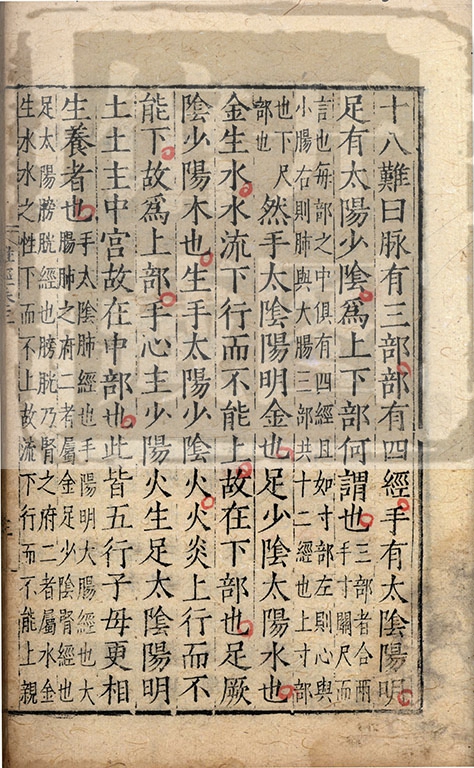 十八難曰脉有三部部有四經手有太陰陽明
足有太陽少陰爲上下部何謂也
三部者合兩
手寸關尺而
言也每部之中俱有四經且如寸部左則心與
小腸右則肺與大腸三部共十二經也上寸部
也下尺
部也
然手太陰陽明金也足少陰太陽水也
金生水水流下行而不能上故在下部也足厥
陰少陽木也生手太陽少陰火火炎上行而不
能下故爲上部手心主少陽火生足太陰陽明
土土主中宮故在中部也此皆五行子母更相
生養者也
手太陰肺經也手陽明大腸經也大
腸肺之府二者屬金足少陰腎經也
足太陽膀胱經也膀胱乃腎之府二者屬水金
生水水之性下而不上故流下行而不能上親